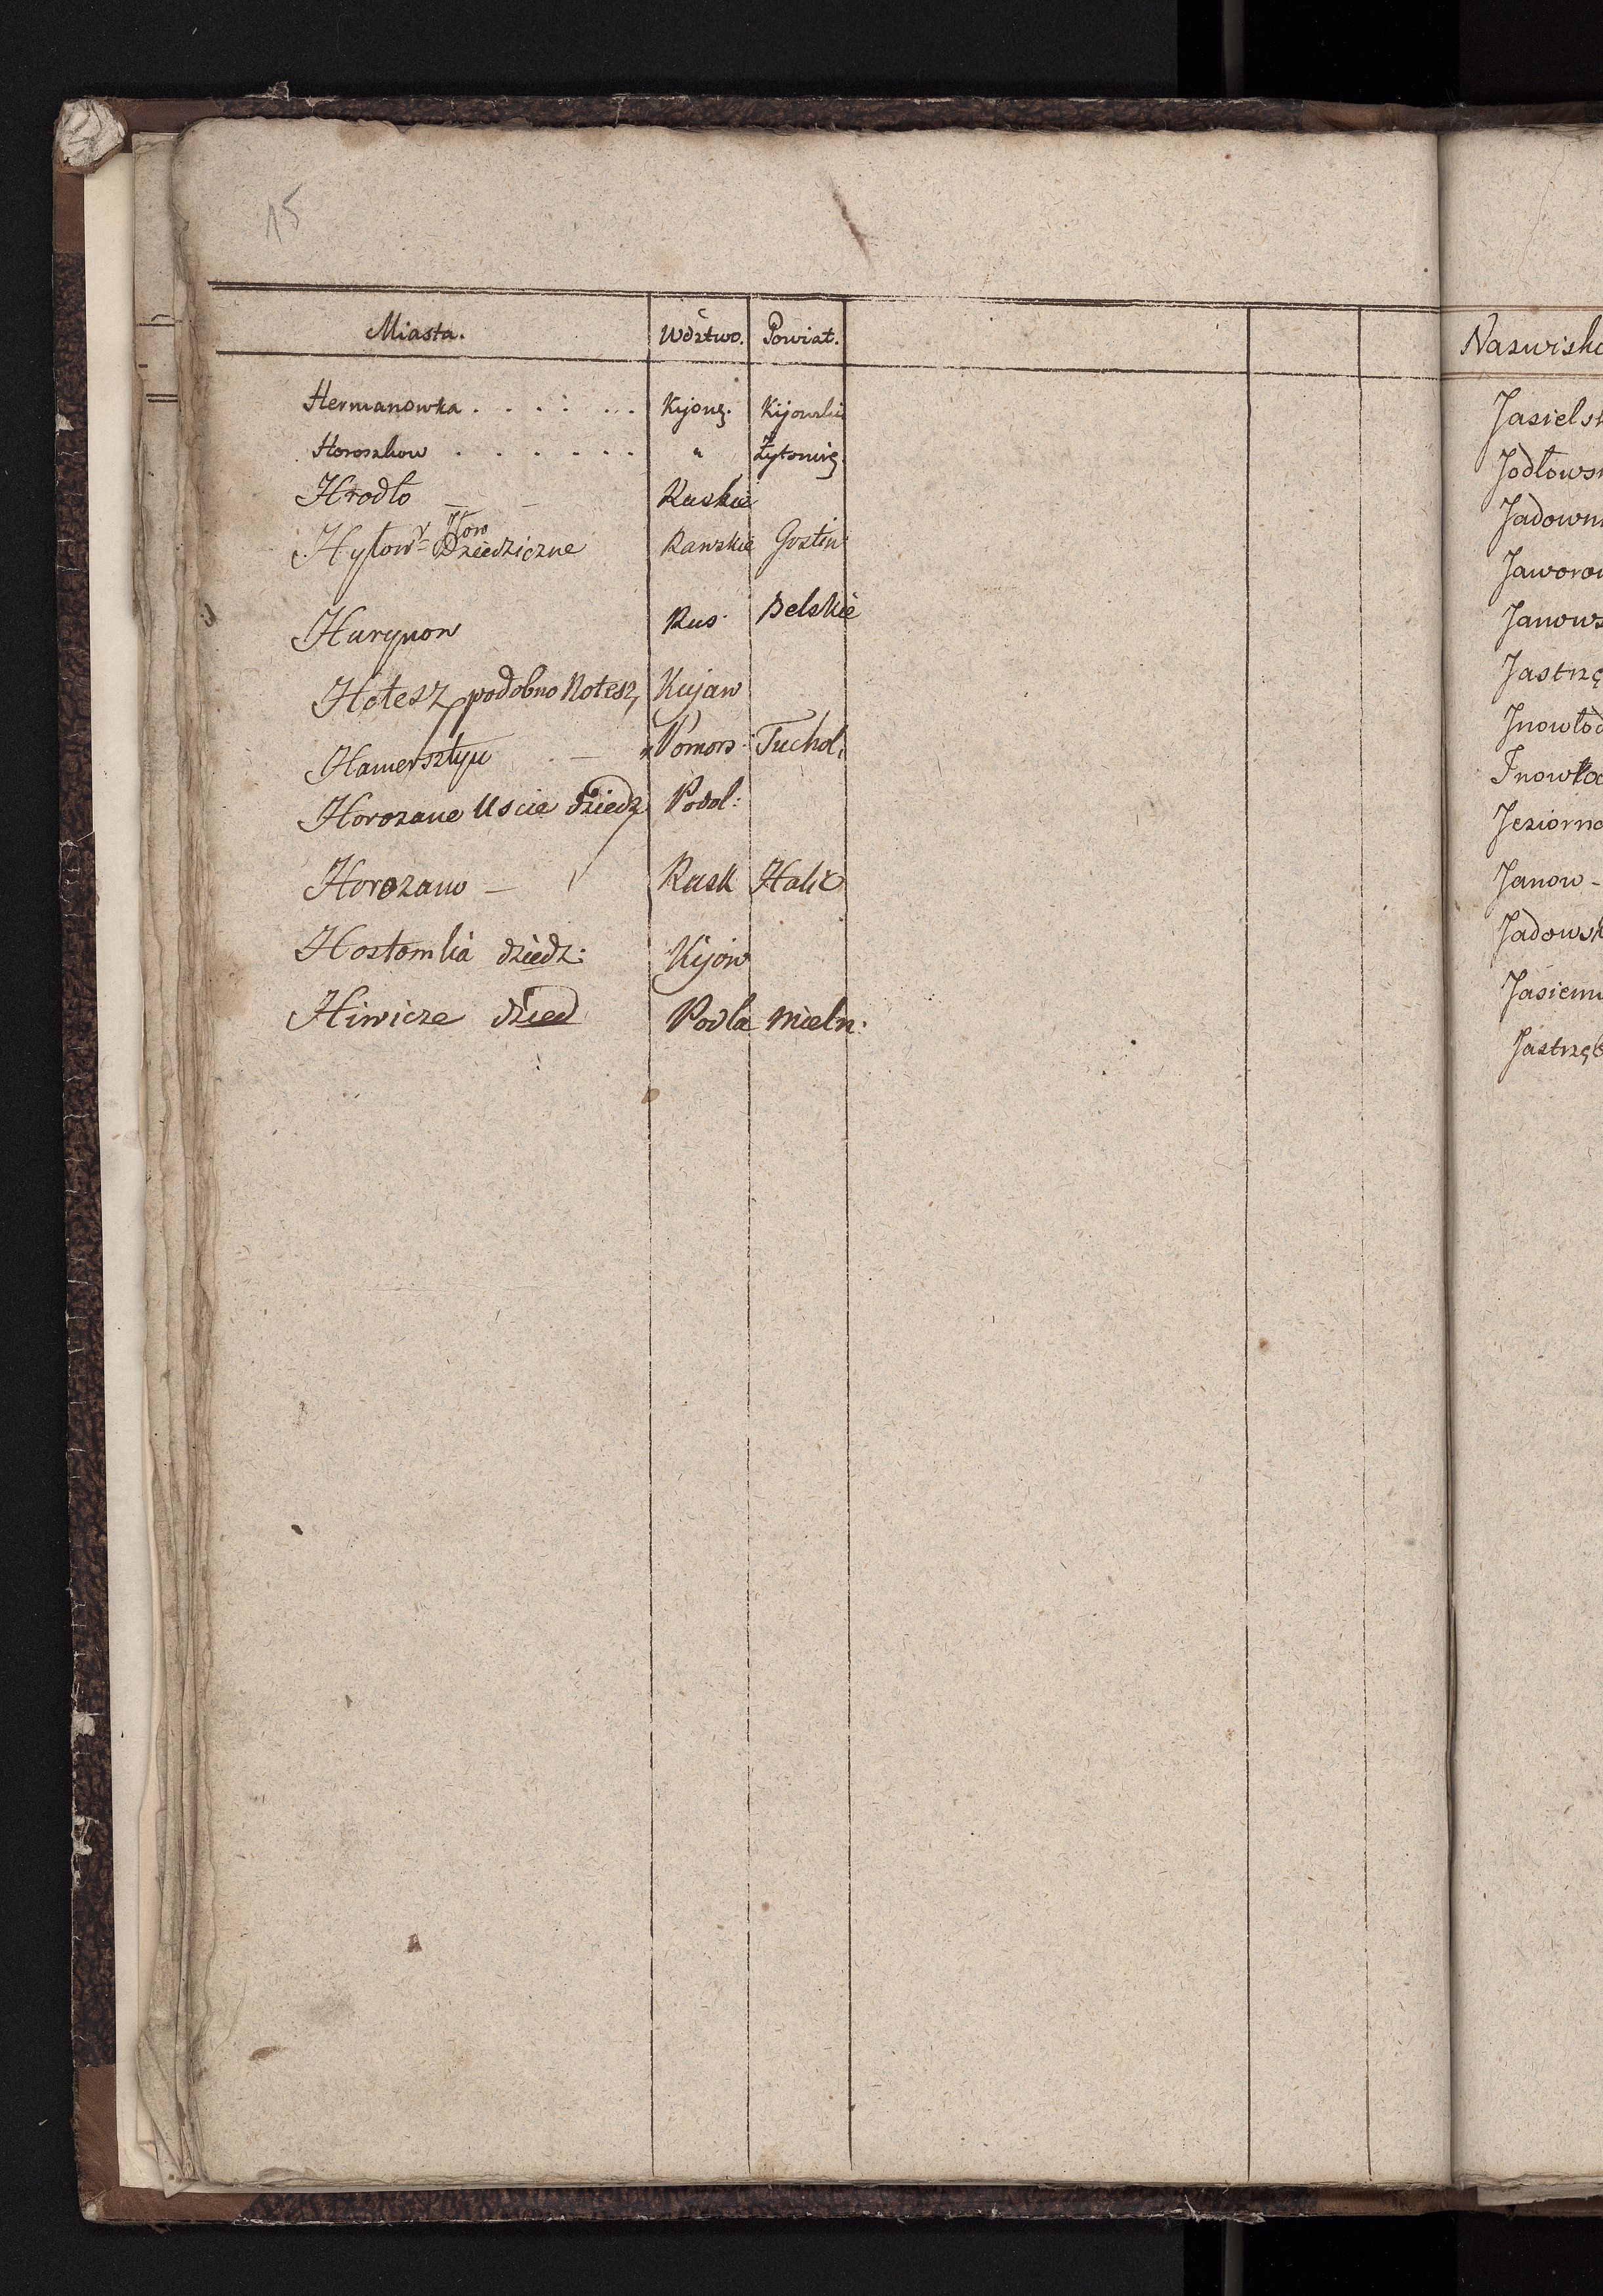 15
Miasta. Wdztwo. Powiat.
Hermanowka . . . . . . . Kijows. Kijowski
Horoszkow . . . . . . . " Żytomirs.
Hrodło — — Ruskie
Hyłow Dziedziczne Rawskie Gostin:
Rus: Belskie
Hotesz podobno Notesz Kujaw
Hamersztyn — Pomors: Tuchol:
Horozane Uscie dziedz Podol:
Horozano — Rusk Halic
Hostomlia dziedz: Kijow
Hiwicze dzied Podla mieln:
Nazwisko
Jasielsk
Jodłowsk
Jadown
Jaworow
Janows
Jastrzę
Jnowłod
Inowłod
Jeziorno
Janow -
Jadowsk
Jasienn
Jastrzęb